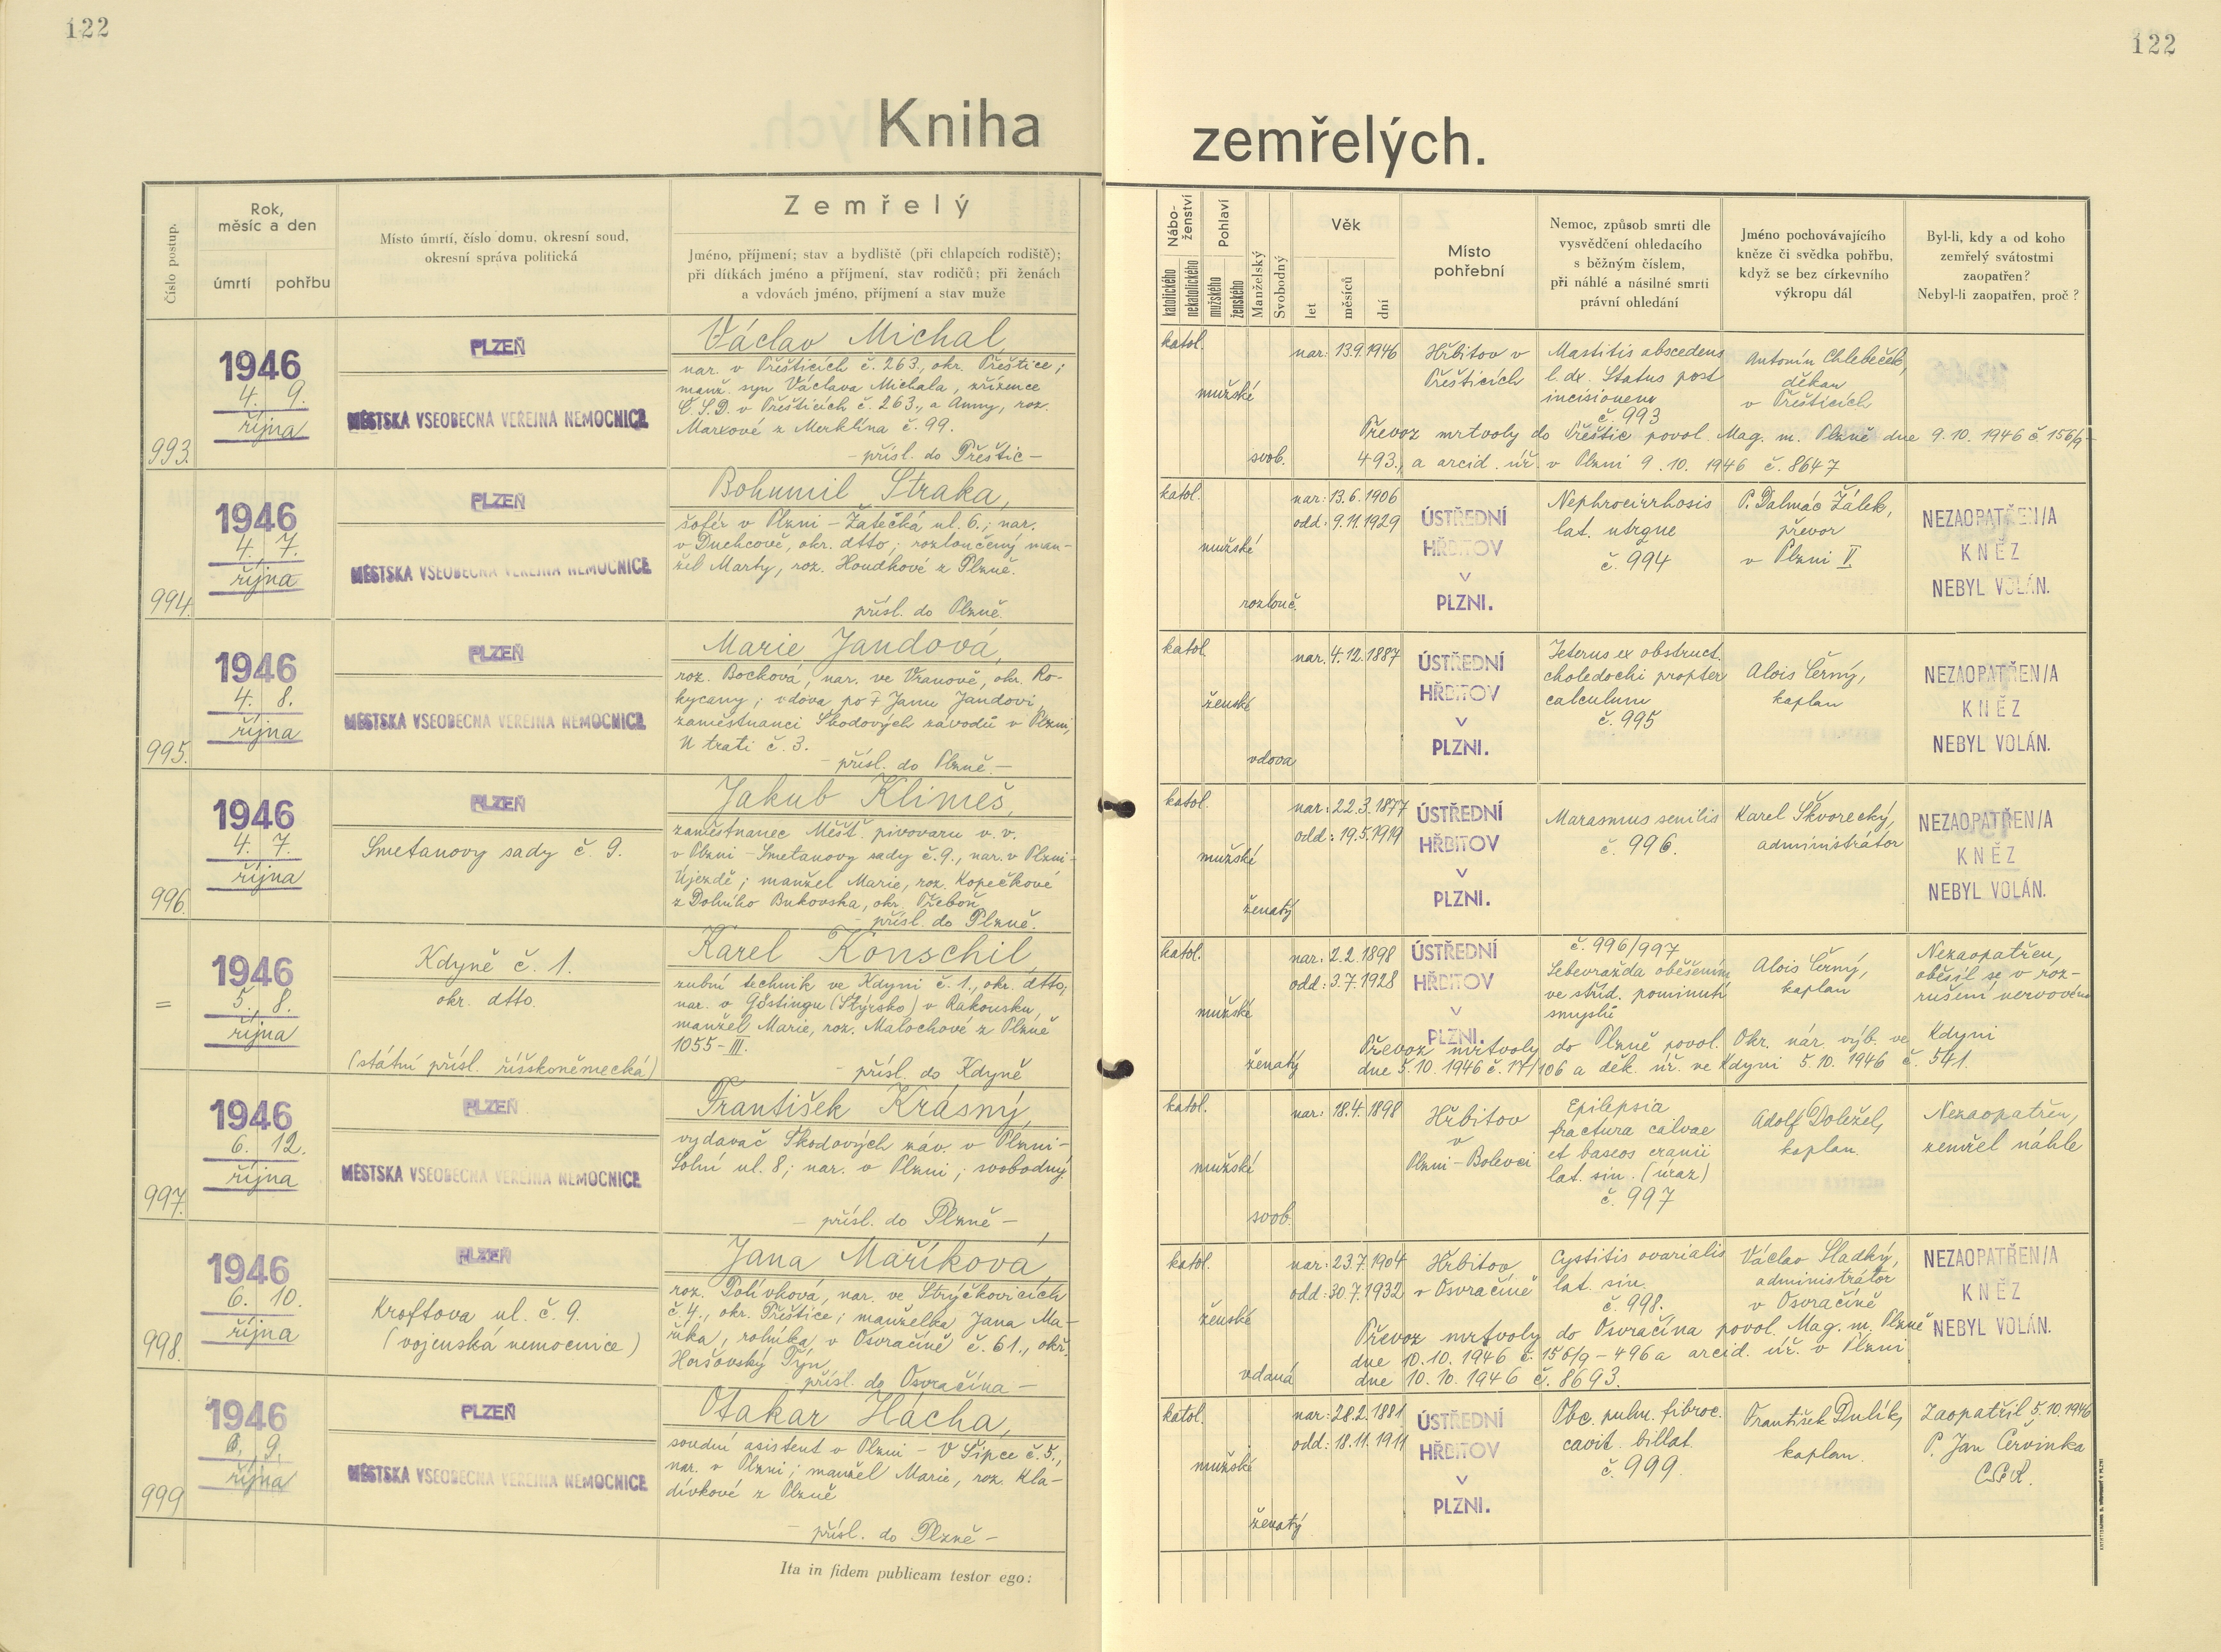 122
122
Kniha
zemřelých.
Číslo postup.
Rok,
měsíc a den
úmrtí
pohřbu
Místo úmrtí, číslo domu, okresní soud,
okresní správa politická
Zemřelý
Jméno, příjmení; stav a bydliště (při chlapcích rodiště);
při dítkách jméno a příjmení, stav rodičů; při ženách
a vdovách jméno, příjmení a stav muže
Nábo-
ženství
katolického
nekatolického
Pohlaví
mužského
ženského
Manželský
Svobodný
Věk
let
měsíců
dní
Místo
pohřební
Nemoc, způsob smrti dle
vysvědčení ohledacího
s běžným číslem,
při náhlé a násilné smrti
právní ohledání
Jméno pochovávajícího
kněze či svědka pohřbu,
když se bez církevního
výkropu dál
Byl-li, kdy a od koho
zemřelý svátostmi
zaopatřen?
Nebyl-li zaopatřen, proč?
993.
1946
4. 9.
října
PLZEŇ
MĚSTSKÁ VŠEOBECNÁ VEŘEJNÁ NEMOCNICE
Václav Michal,
nar. v Přešticích č. 263., okr. Přeštice;
manž. syn Václava Michala, zřízence
Č.S.D. v Přešticích č. 263., a Anny, roz.
Marxové z Merklína č. 99.
- přísl. do Přeštic -
katol.
mužské
svob.
nar: 13.9.1946
Hřbitov v
Přešticích
Mastitis abscedens
l. dx. Status post
incisionem
č. 993
Antonín Chlebeček,
děkan
v Přešticích
Převoz mrtvoly do Přeštic povol. Mag. m. Plzně dne 9.10. 1946 č. 156/9-
493., a arcid. úř. v Plzni 9. 10. 1946 č. 8647
994.
1946
4. 7.
října
PLZEŇ
MĚSTSKÁ VŠEOBECNÁ VEŘEJNÁ NEMOCNICE
Bohumil Straka,
šofér v Plzni - Žatecká ul. 6.; nar.
v Duchcově, okr. dtto; rozloučený man-
žel Marty, roz. Houdkové z Plzně.
přísl. do Plzně.
katol.
mužské
rozlouč.
nar: 13.6.1906
odd: 9.11.1929
ÚSTŘEDNÍ
HŘBITOV
V
PLZNI.
Nephrocirrhosis
lat. utrque
č. 994
P. Dalmác Žálek,
převor
v Plzni II
NEZAOPATŘEN/A
KNĚZ
NEBYL VOLÁN.
995.
1946
4. 8.
října
PLZEŇ
MĚSTSKÁ VŠEOBECNÁ VEŘEJNÁ NEMOCNICE
Marie Jandová,
roz. Bocková, nar. ve Vranově, okr. Ro-
kycany; vdova po † Janu Jandovi,
zaměstnanci Škodových závodů v Plzni,
U trati č. 3.
- přísl. do Plzně. -
katol.
ženské
vdova
nar. 4.12.1887
ÚSTŘEDNÍ
HŘBITOV
V
PLZNI.
Icterus ex obstruct.
choledochi propter
calculum
č. 995
Alois Černý,
kaplan
NEZAOPATŘEN/A
KNĚZ
NEBYL VOLÁN.
996.
1946
4. 7.
října
PLZEŇ
Smetanovy sady č. 9.
Jakub Klimeš,
zaměstnanec Měšť. pivovaru v. v.
v Plzni - Smetanovy sady č. 9., nar. v Plzni-
Újezdě; manžel Marie, roz. Kopečkové
z Dolního Bukovska, okr. Třeboň
- přísl. do Plzně.
katol.
mužské
ženatý
nar: 22.3.1877
odd: 19.5.1919
ÚSTŘEDNÍ
HŘBITOV
V
PLZNI.
Marasmus senilis
č. 996.
Karel Škvorecký,
administrátor
NEZAOPATŘEN/A
KNĚZ
NEBYL VOLÁN.
=
1946
5. 8.
října
Kdyně č. 1.
okr. dtto.
(státní přísl. říšskoněmecká)
Karel Konschil,
zubní technik ve Kdyni č. 1., okr. dtto;
nar. v Göstingu (Štýrsko) v Rakousku,
manžel Marie, roz. Malochové z Plzně
1055-III.
- přísl. do Kdyně
katol.
mužské
ženatý
nar: 2.2.1898
odd: 3.7.1928
ÚSTŘEDNÍ
HŘBITOV
V
PLZNI.
č. 996/997
Sebevražda oběšením
ve stříd. pominutí
smyslů
Alois Černý,
kaplan
Nezaopatřen,
oběsil se v roz-
rušení nervovém
Převoz mrtvoly do Plzně povol. Okr. nár. výb. ve Kdyni
dne 5.10. 1946 č. 17/106 a děk. úř. ve Kdyni 5.10. 1946 č. 541.
997.
1946
6. 12.
října
PLZEŇ
MĚSTSKÁ VŠEOBECNÁ VEŘEJNÁ NEMOCNICE
František Krásný,
vydavač Škodových záv. v Plzni-
Solní ul. 8; nar. v Plzni; svobodný.
- přísl. do Plzně -
katol.
mužské
svob.
nar: 18.4.1898
Hřbitov
v
Plzni - Bolevci
Epilepsia
fractura calvae
et baseos cranii
lat. sin. (úraz)
č. 997
Adolf Doležel,
kaplan.
Nezaopatřen,
zemřel náhle
998.
1946
6. 10.
října
PLZEŇ
Kroftova ul. č. 9.
(vojenská nemocnice)
Jana Maříková,
roz. Polívková, nar. ve Strýčkovicích
č 4., okr. Přeštice; manželka Jana Ma-
říka, rolníka v Osvračíně č. 61., okr.
Horšovský Týn,
- přísl. do Osvračína -
katol.
ženské
vdaná
nar: 23.7.1904
odd: 30.7.1932
Hřbitov
v Osvračíně
Cystitis ovarialis
lat. sin.
č. 998.
Václav Sladký,
administrátor
v Osvračíně
NEZAOPATŘEN/A
KNĚZ
NEBYL VOLÁN.
Převoz mrtvoly do Osvračína povol. Mag. m. Plzně
dne 10.10. 1946 č. 156/9 - 496 a arcid. úř. v Plzni
dne 10. 10. 1946 č. 8693.
999
1946
6. 9.
října
PLZEŇ
MĚSTSKÁ VŠEOBECNÁ VEŘEJNÁ NEMOCNICE
Otakar Hácha,
soudní asistent v Plzni - V Šipce č. 5.,
nar. v Plzni; manžel Marie, roz. Kla-
dívkové z Plzně
- přísl. do Plzně -
katol.
mužské
ženatý
nar: 28.2.1881
odd: 18.11.1911
ÚSTŘEDNÍ
HŘBITOV
V
PLZNI.
Tbc. pulm. fibroc.
cavit. billat.
č. 999.
František Dulík,
kaplan.
Zaopatřil 5.10.1946
P. Jan Červinka
C.Ss.R.
Ita in fidem publicam testor ego: